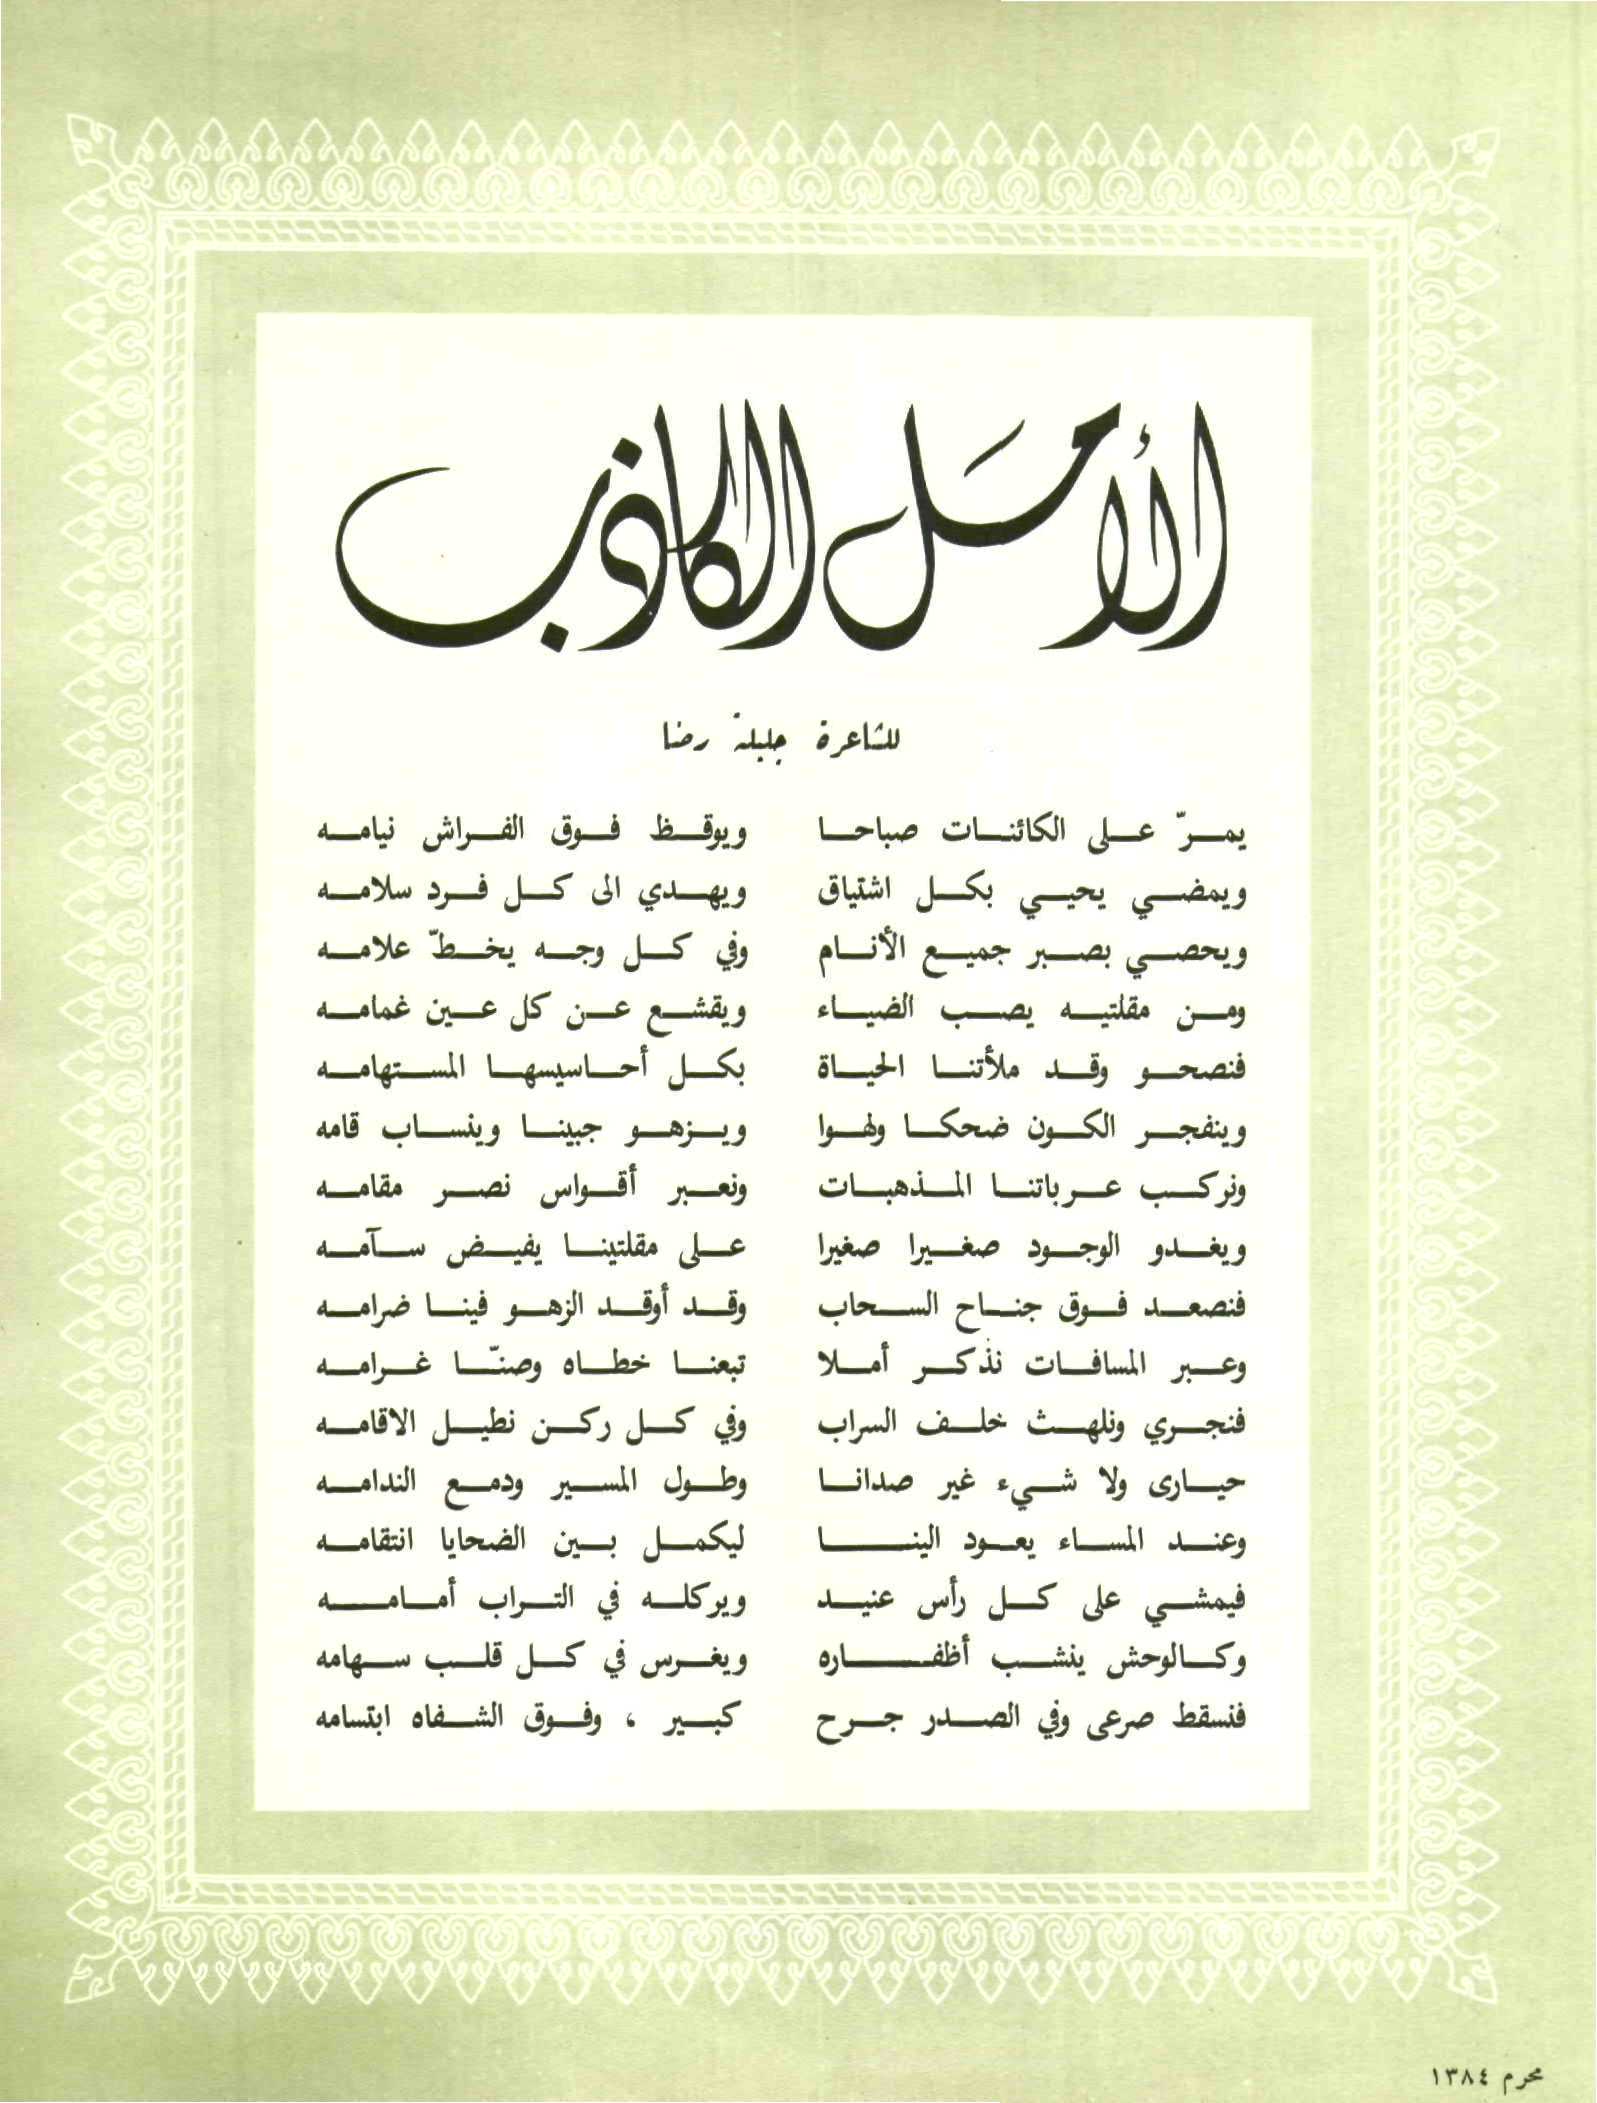 الأمَل الكاذب
للشاعرة جليلة رضا
يمرّ على الكائنات صباحا ويوقظ فوق الفراش نيامه
ويمضي يحيي بكل اشتياق ويهدي الى كل فرد سلامه
ويحصي بصبر جميع الأنام وفي كل وجه يخطّ علامه
ومن مقلتيه يصب الضياء ويقشع عن كل عين غمامه
فنصحو وقد ملأتنا الحياة بكل أحاسيسها المستهامه
وينفجر الكون ضحكا ولهوا ويزهو جبينا وينساب قامه
ونركب عرباتنا المذهبات ونعبر أقواس نصر مقامه
ويغدو الوجود صغيرا صغيرا على مقلتينا يفيض سآمه
فنصعد فوق جناح السحاب وقد أوقد الزهو فينا ضرامه
وعبر المسافات نذكر أملا تبعنا خطاه وصنّا غرامه
فنجري ونلهث خلف السراب وفي كل ركن نطيل الاقامه
حيارى ولا شيء غير صدانا وطول المسير ودمع الندامه
وعند المساء يعود الينا ليكمل بين الضحايا انتقامه
فيمشي على كل رأس عنيد ويركله في التراب أمامه
وكالوحش ينشب أظفاره ويغرس في كل قلب سهامه
فنسقط صرعى وفي الصدر جرح كبير ، وفوق الشفاه ابتسامه
محرم ١٣٨٤